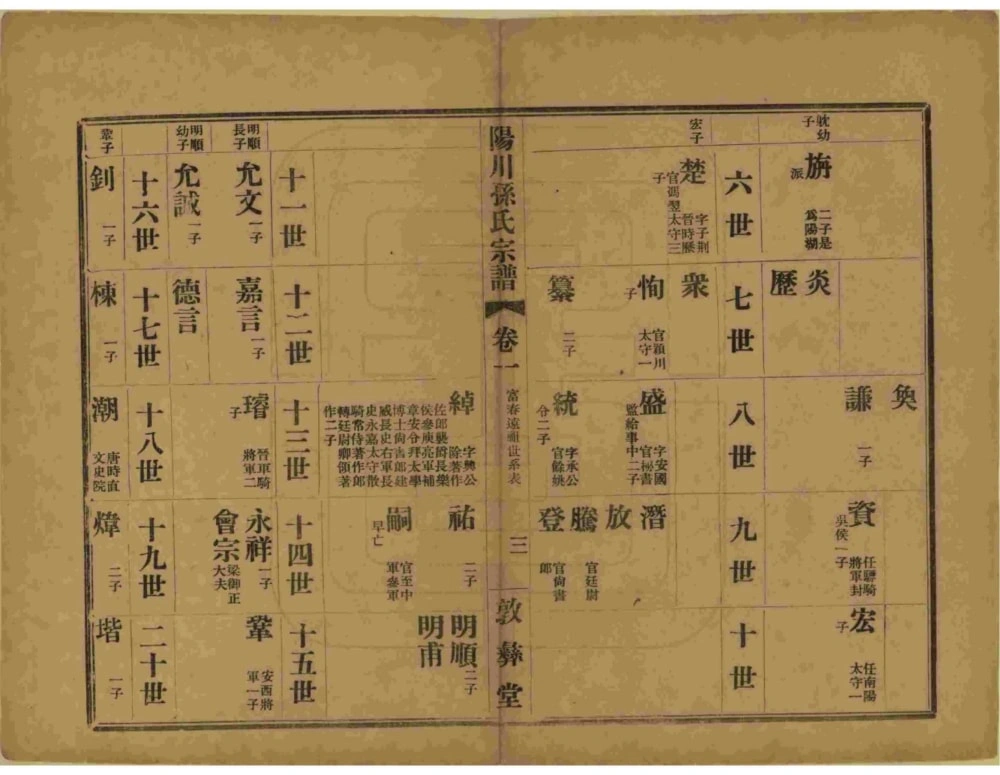 耽幼子
旃 二子是爲陽湖派
炎
歷
奐
謙 一子
資 任驃騎將軍封吳侯一子
宏 任南陽太守一子
六世
七世
八世
九世
十世
宏子
楚 字子荆晉時歷官馮翌太守三子
衆
恂 官潁川太守一子
纂 二子
盛 字安國官秘書監給事中二子
統 字承公官餘姚令二子
潛
放
騰 官廷尉
登 官尚書郎
陽川孫氏宗譜
卷一
富春遠頭世系表
三
敦彝堂
綽 字興公除著作佐郎襲爵長樂侯參庾亮軍補章安令拜太學博士尚書郎建威長史右軍長史永嘉太守散騎常侍著作郎轉廷尉卿領著作二子
祐 二子
嗣 官至中軍參軍早亡
明順 二子
明甫
十一世
十二世
十三世
十四世
十五世
明順長子
允文 一子
嘉言 一子
璿 晉軍騎將軍二子
永祥 一子
會宗 梁御正大夫
鞏 安西將軍一子
明順幼子
允誠 一子
德言
十六世
十七世
十八世
十九世
二十世
鞏子
釗 一子
棟 一子
潮 唐時直文史院
煒 二子
堦 一子